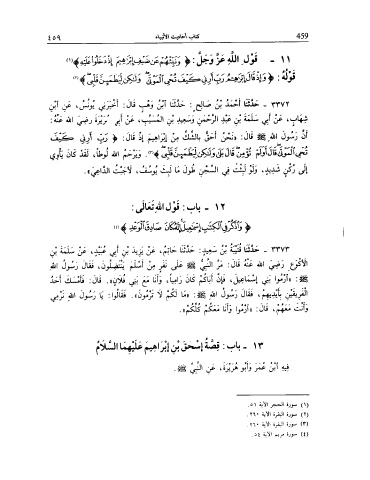 ٤٥٩ كتاب أحاديث الأنبياء 459
١١ - قَوْلِ اللهِ عَزَّ وَجَلَّ: ﴿ وَنَبِّئْهُمْ عَن ضَيْفِ إِبْرَٰهِيمَ إِذْ دَخَلُوا۟ عَلَيْهِ ﴾(١)
قَوْلُهُ: ﴿ وَإِذْ قَالَ إِبْرَٰهِيمُ رَبِّ أَرِنِى كَيْفَ تُحْىِ ٱلْمَوْتَىٰ وَلَٰكِن لِّيَطْمَئِنَّ قَلْبِى ﴾(٢)
٣٣٧٢ - حَدَّثَنَا أَحْمَدُ بْنُ صَالِحٍ: حَدَّثَنَا ابْنُ وَهْبٍ قَالَ: أَخْبَرَنِي يُونُسُ، عَنِ ابْنِ
شِهَابٍ، عَنْ أَبِي سَلَمَةَ بْنِ عَبْدِ الرَّحْمَنِ وَسَعِيدِ بْنِ المُسَيَّبِ، عَنْ أَبِي هُرَيْرَةَ رَضِيَ اللهُ عَنْهُ:
أَنَّ رَسُولَ اللهِ ﷺ قَالَ: «نَحْنُ أَحَقُّ بِالشَّكِّ مِنْ إِبْرَاهِيمَ إِذْ قَالَ: ﴿ رَبِّ أَرِنِى كَيْفَ
تُحْىِ ٱلْمَوْتَىٰ قَالَ أَوَلَمْ تُؤْمِن قَالَ بَلَىٰ وَلَٰكِن لِّيَطْمَئِنَّ قَلْبِى ﴾(٣). وَيَرْحَمُ اللهُ لُوطًا، لَقَدْ كَانَ يَأْوِي
إِلَى رُكْنٍ شَدِيدٍ، وَلَوْ لَبِثْتُ فِي السِّجْنِ طُولَ مَا لَبِثَ يُوسُفُ، لَأَجَبْتُ الدَّاعِيَ».
١٢ - باب: قَوْلِ اللهِ تَعَالَى:
﴿ وَٱذْكُرْ فِى ٱلْكِتَٰبِ إِسْمَٰعِيلَ إِنَّهُۥ كَانَ صَادِقَ ٱلْوَعْدِ ﴾(٤)
٣٣٧٣ - حَدَّثَنَا قُتَيْبَةُ بْنُ سَعِيدٍ: حَدَّثَنَا حَاتِمٌ، عَنْ يَزِيدَ بْنِ أَبِي عُبَيْدٍ، عَنْ سَلَمَةَ بْنِ
الأَكْوَعِ رَضِيَ اللهُ عَنْهُ قَالَ: مَرَّ النَّبِيُّ ﷺ عَلَى نَفَرٍ مِنْ أَسْلَمَ يَنْتَضِلُونَ، فَقَالَ رَسُولُ اللهِ
ﷺ: «ارْمُوا بَنِي إِسْمَاعِيلَ، فَإِنَّ أَبَاكُمْ كَانَ رَامِيًا، وَأَنَا مَعَ بَنِي فُلَانٍ». قَالَ: فَأَمْسَكَ أَحَدُ
الْفَرِيقَيْنِ بِأَيْدِيهِمْ، فَقَالَ رَسُولُ اللهِ ﷺ: «مَا لَكُمْ لَا تَرْمُونَ؟». فَقَالُوا: يَا رَسُولَ اللهِ نَرْمِي
وَأَنْتَ مَعَهُمْ، قَالَ: «ارْمُوا وَأَنَا مَعَكُمْ كُلِّكُمْ».
١٣ - باب: قِصَّةُ إِسْحَقَ بْنِ إِبْرَاهِيمَ عَلَيْهِمَا السَّلَامُ
فِيهِ ابْنُ عُمَرَ وَأَبُو هُرَيْرَةَ، عَنِ النَّبِيِّ ﷺ.
(١) سورة الحجر الآية ٥١.
(٢) سورة البقرة الآية ٢٦٠.
(٣) سورة البقرة الآية ٢٦٠.
(٤) سورة مريم الآية ٥٤.